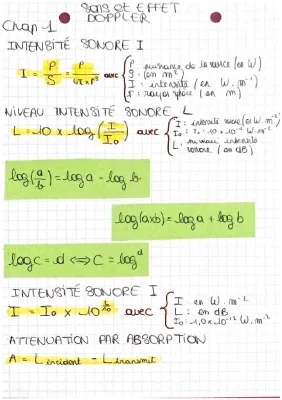 Sons et EFFET
DOPPLER
Chap-1
INTENSITÉ SONORE I
I = P/S = P/4π×r² avec { P : puissance de la source (en W)
S : (en m²)
I : intensité (en W.m⁻²)
r : rayon sphère (en m)
NIVEAU INTENSITÉ SONORE L
L = 10 × log(I/I₀) avec { I : intensité sonore (en W.m⁻²)
I₀ : I₀ = 1,0 × 10⁻¹² W.m⁻²
L : niveau intensité
sonore (en dB)
log(a/b) = log a - log b
log(a×b) = log a + log b
log c = d <=> c = 10^d
INTENSITÉ SONORE I
I = I₀ × 10^(L/10) avec { I : en W.m⁻²
L : en dB
I₀ : 1,0×10⁻¹² W.m⁻²
ATTENUATION PAR ABSORPTION
A = L incident - L transmit